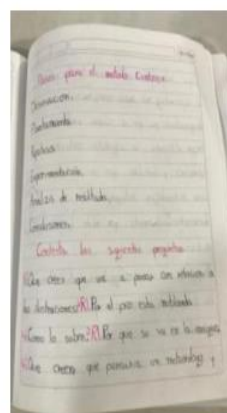 Pasos para el metodo Cientifico
Observacion.
Planteamiento
Hipotesis
Experimentacion.
Analisis de resultado
Conclusiones.
Contesta las siguientes preguntas
que crees que va a pasar con
las ilustraciones? R) Por el piso esta mojado
Como lo sabes? R) Por que se ve en la imagen
Que crees que pensaria un y